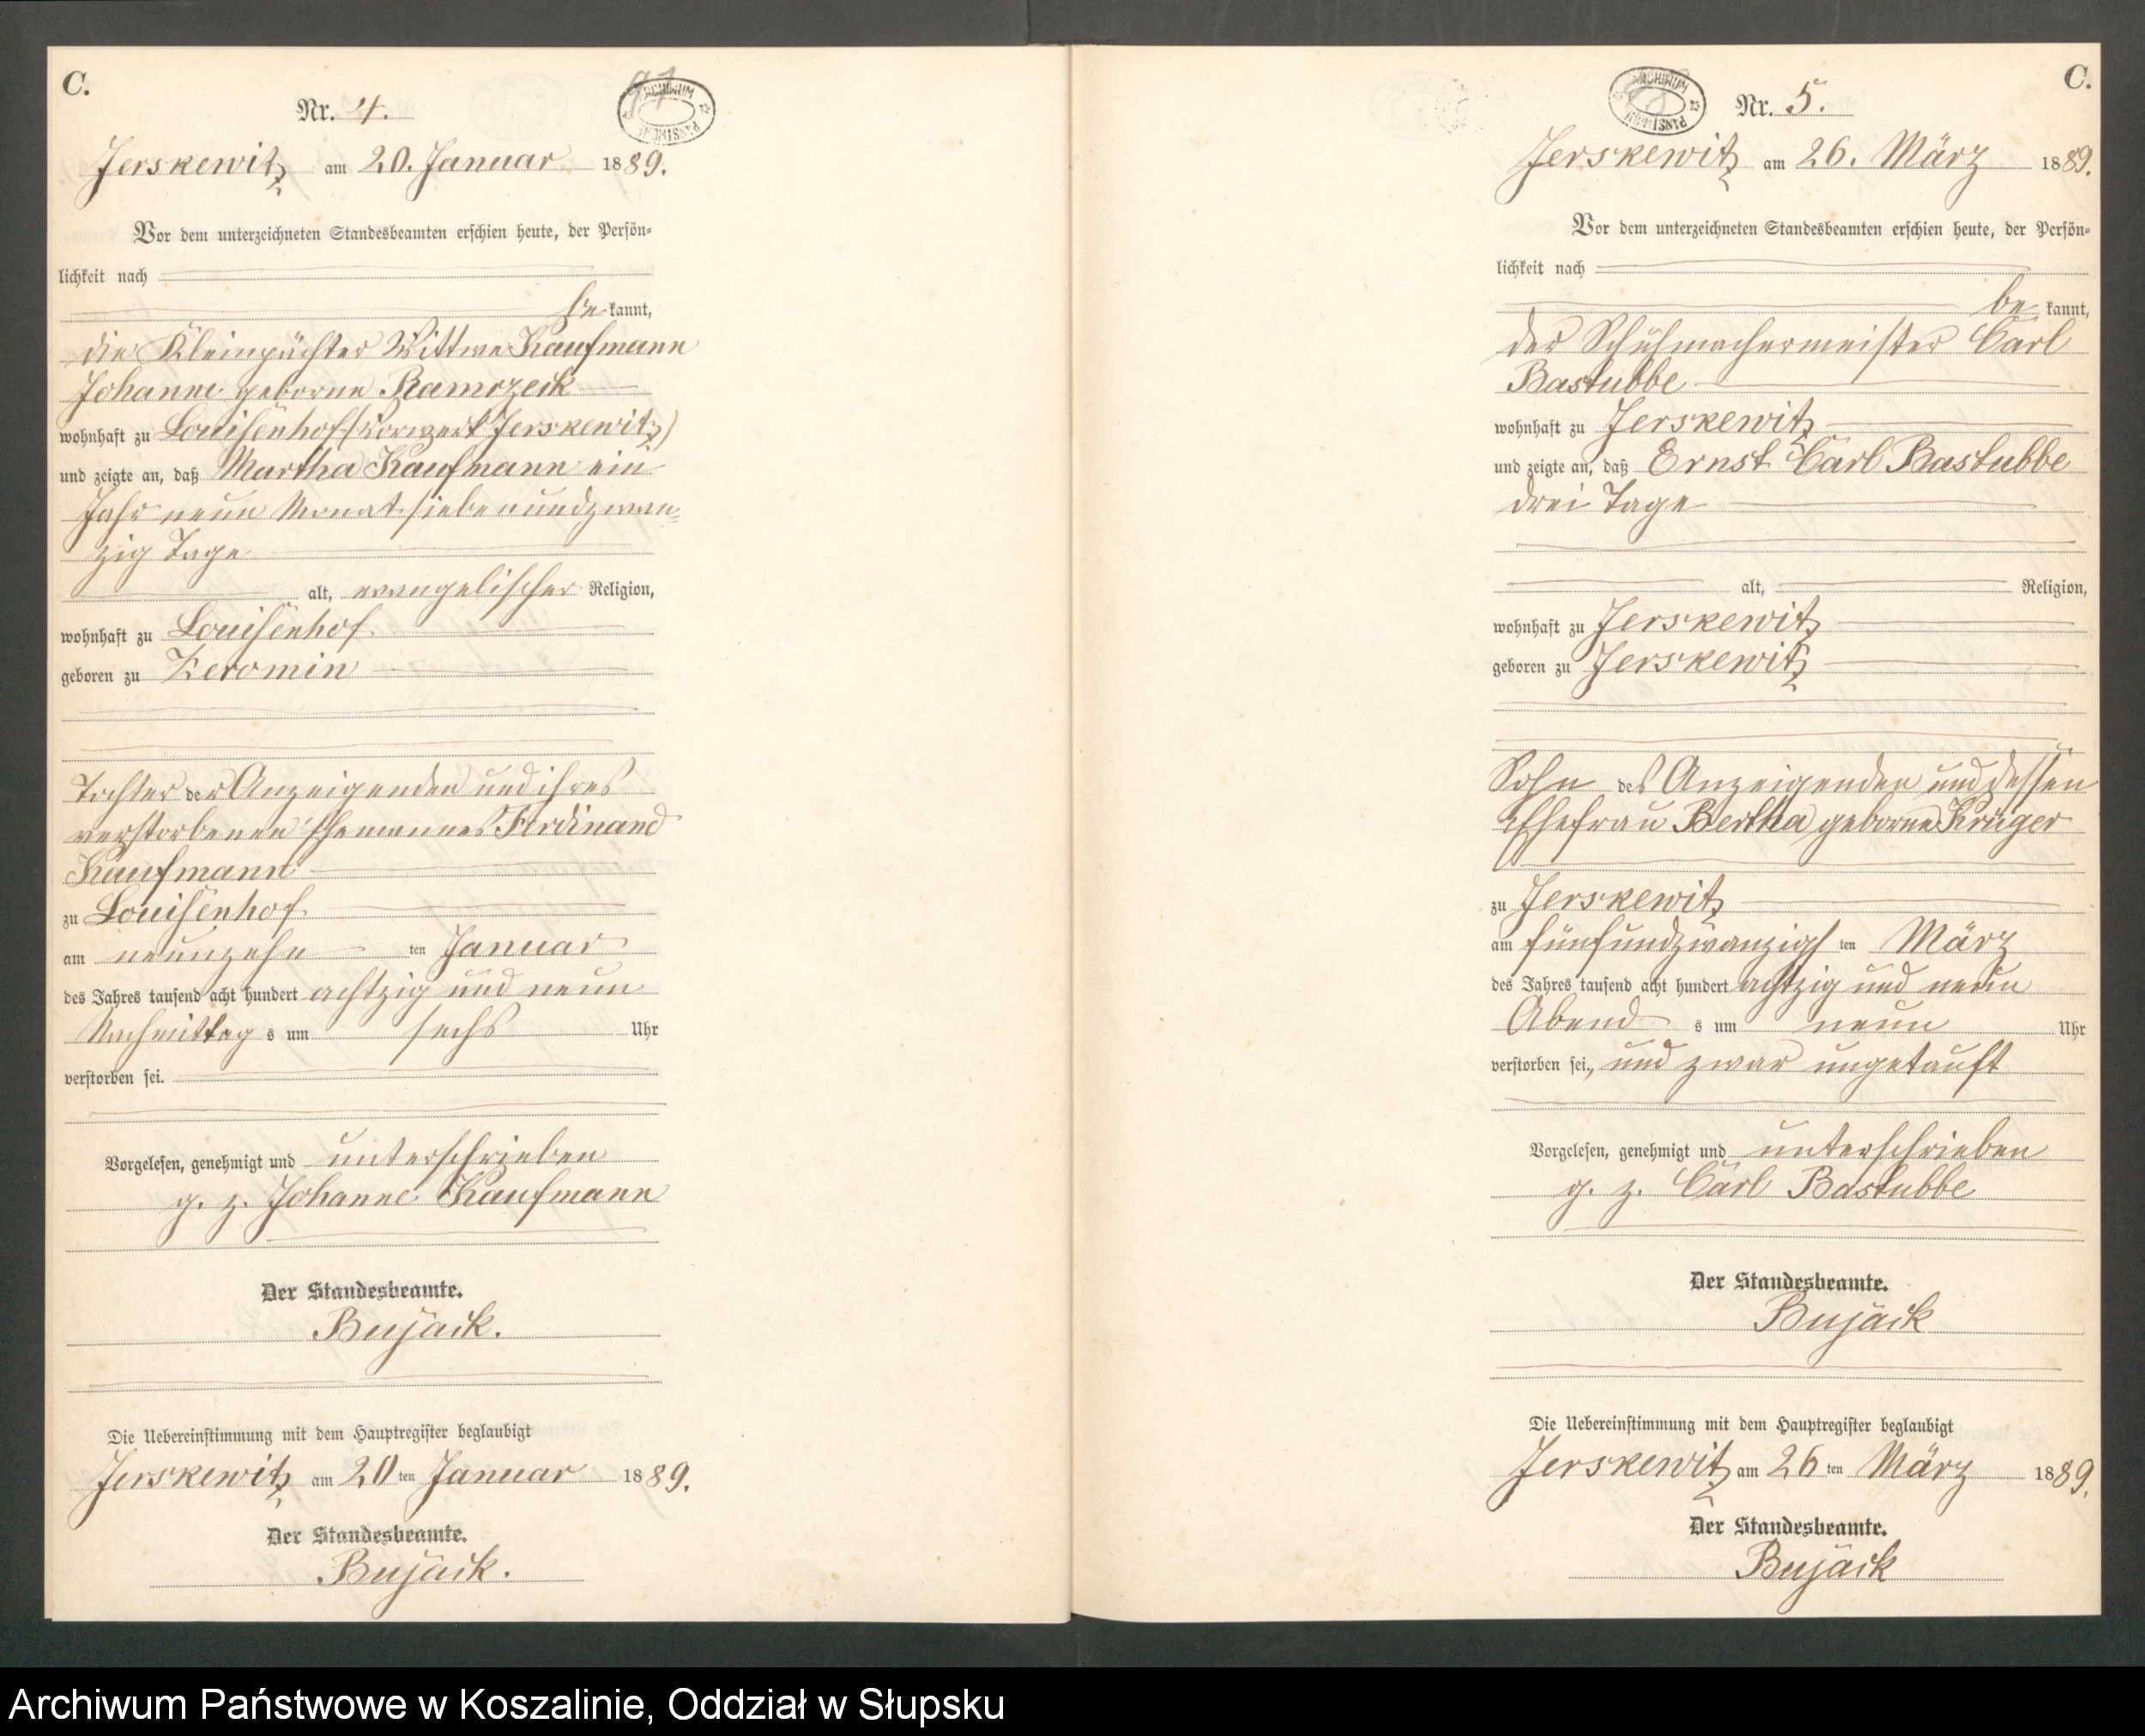 C.
Nr. 4.
97
ARCHIWUM PAŃSTWOWE
Jerskewitz am 20. Januar 1889.
Vor dem unterzeichneten Standesbeamten erschien heute, der Persön=
lichkeit nach
be kannt,
die Kleinpächter Wittwe Kaufmann
Johanne geborne Ramrzeck
wohnhaft zu Louisenhof (Vorwerk Jerskewitz)
und zeigte an, daß Martha Kaufmann ein
Jahr neun Monat siebenundzwan=
zig Tage
alt, evangelischer Religion,
wohnhaft zu Louisenhof
geboren zu Zeromin
Tochter der Anzeigenden und ihres
verstorbenen Ehemannes Ferdinand
Kaufmann
zu Louisenhof
am neunzehn ten Januar
des Jahres tausend acht hundert achtzig und neun
Nachmittag s um sechs Uhr
verstorben sei.
Vorgelesen, genehmigt und unterschrieben
g. z. Johanne Kaufmann
Der Standesbeamte.
Bujack.
Die Uebereinstimmung mit dem Hauptregister beglaubigt
Jerskewitz am 20 ten Januar 1889.
Der Standesbeamte.
Bujack.
C.
ARCHIWUM PAŃSTWOWE
Nr. 5.
Jerskewitz am 26. März 1889.
Vor dem unterzeichneten Standesbeamten erschien heute, der Persön=
lichkeit nach
be kannt,
der Schuhmachermeister Carl
Bastubbe
wohnhaft zu Jerskewitz
und zeigte an, daß Ernst Carl Bastubbe
drei Tage
alt, Religion,
wohnhaft zu Jerskewitz
geboren zu Jerskewitz
Sohn des Anzeigenden und dessen
Ehefrau Bertha geborne Krüger
zu Jerskewitz
am fünfundzwanzigs ten März
des Jahres tausend acht hundert achtzig und neun
Abend s um neun Uhr
verstorben sei, und zwar ungetauft
Vorgelesen, genehmigt und unterschrieben
g. z. Carl Bastubbe
Der Standesbeamte.
Bujack
Die Uebereinstimmung mit dem Hauptregister beglaubigt
Jerskewitz am 26 ten März 1889.
Der Standesbeamte.
Bujack
Archiwum Państwowe w Koszalinie, Oddział w Słupsku